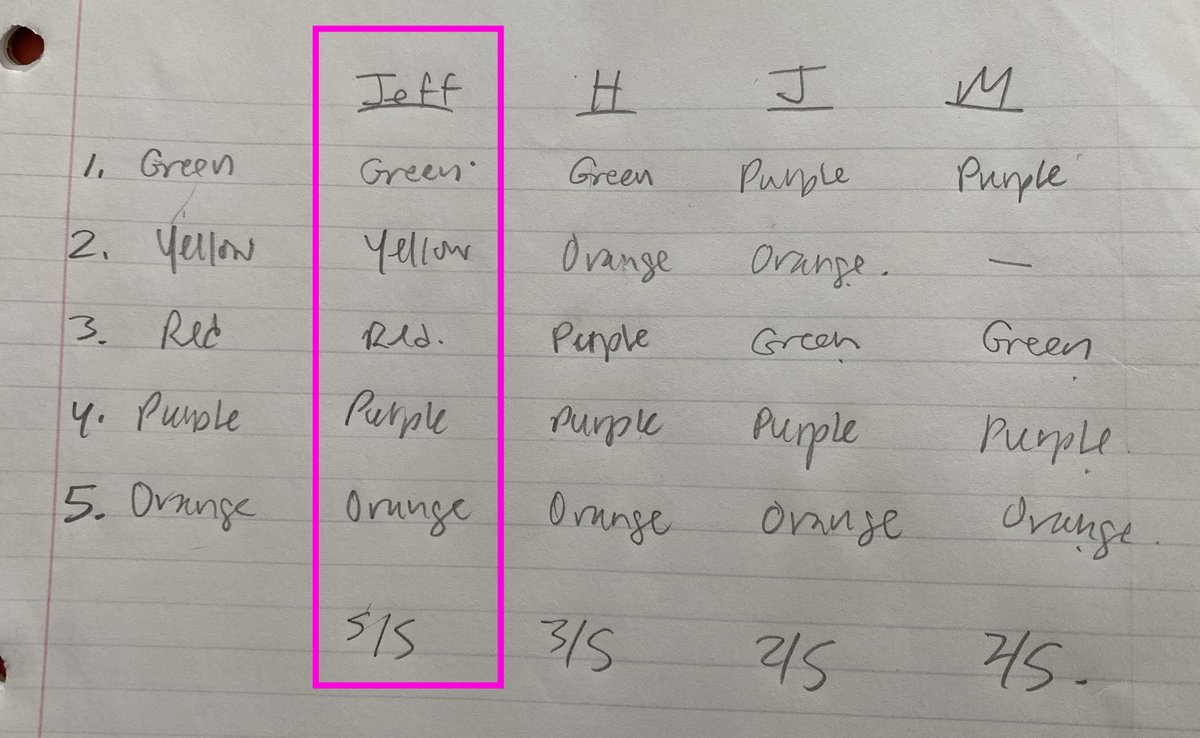 Jeff H J M
1. Green Green Green Purple Purple
2. Yellow Yellow Orange Orange. —
3. Red Red. Purple Green Green
4. Purple Purple Purple Purple Purple.
5. Orange Orange Orange Orange Orange.
5/5 3/5 2/5 2/5.